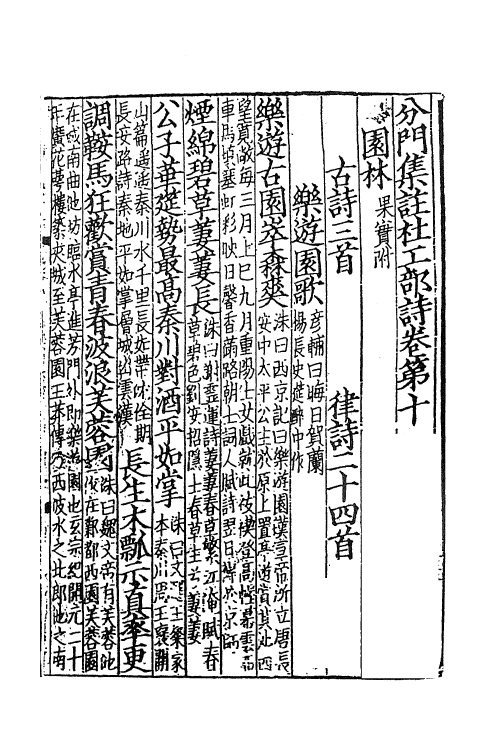 分門集註杜工部詩卷第十
園林 果實附
古詩三首 律詩二十四首
樂遊園歌 彥輔曰晦日賀蘭
楊長史筵醉中作
樂遊古園崒森爽 洙曰西京記曰樂遊園漢宣帝所立唐長
安中太平公主於原上置亭遊賞其地四
望寬敞每三月上巳九月重陽士女戲就此祓禊登高幄幕雲布
車馬填塞虹彩映日馨香滿路朝士詞人賦詩翌日傳於京師
煙綿碧草萋萋長 洙曰謝靈運詩萋萋春草繁江淹賦春
草碧色劉安招隱士春草生兮萋萋
公子華筵勢最高秦川對酒平如掌 洙曰文選王粲家
本秦川思王褒謝
山篇遥遥秦川水千里長如帶沈佺期
長安路詩秦地平如掌層城出雲漢
長生木瓢示真率更
調鞍馬狂歡賞青春波浪芙蓉園 洙曰魏文帝有芙蓉池
作在鄴都西園芙蓉園
在城南曲池坊臨水亭進芳門外即樂遊園也玄宗紀開元二十
年廣花萼樓築夾城至芙蓉園王莽傳乃西波水之北郎池之南